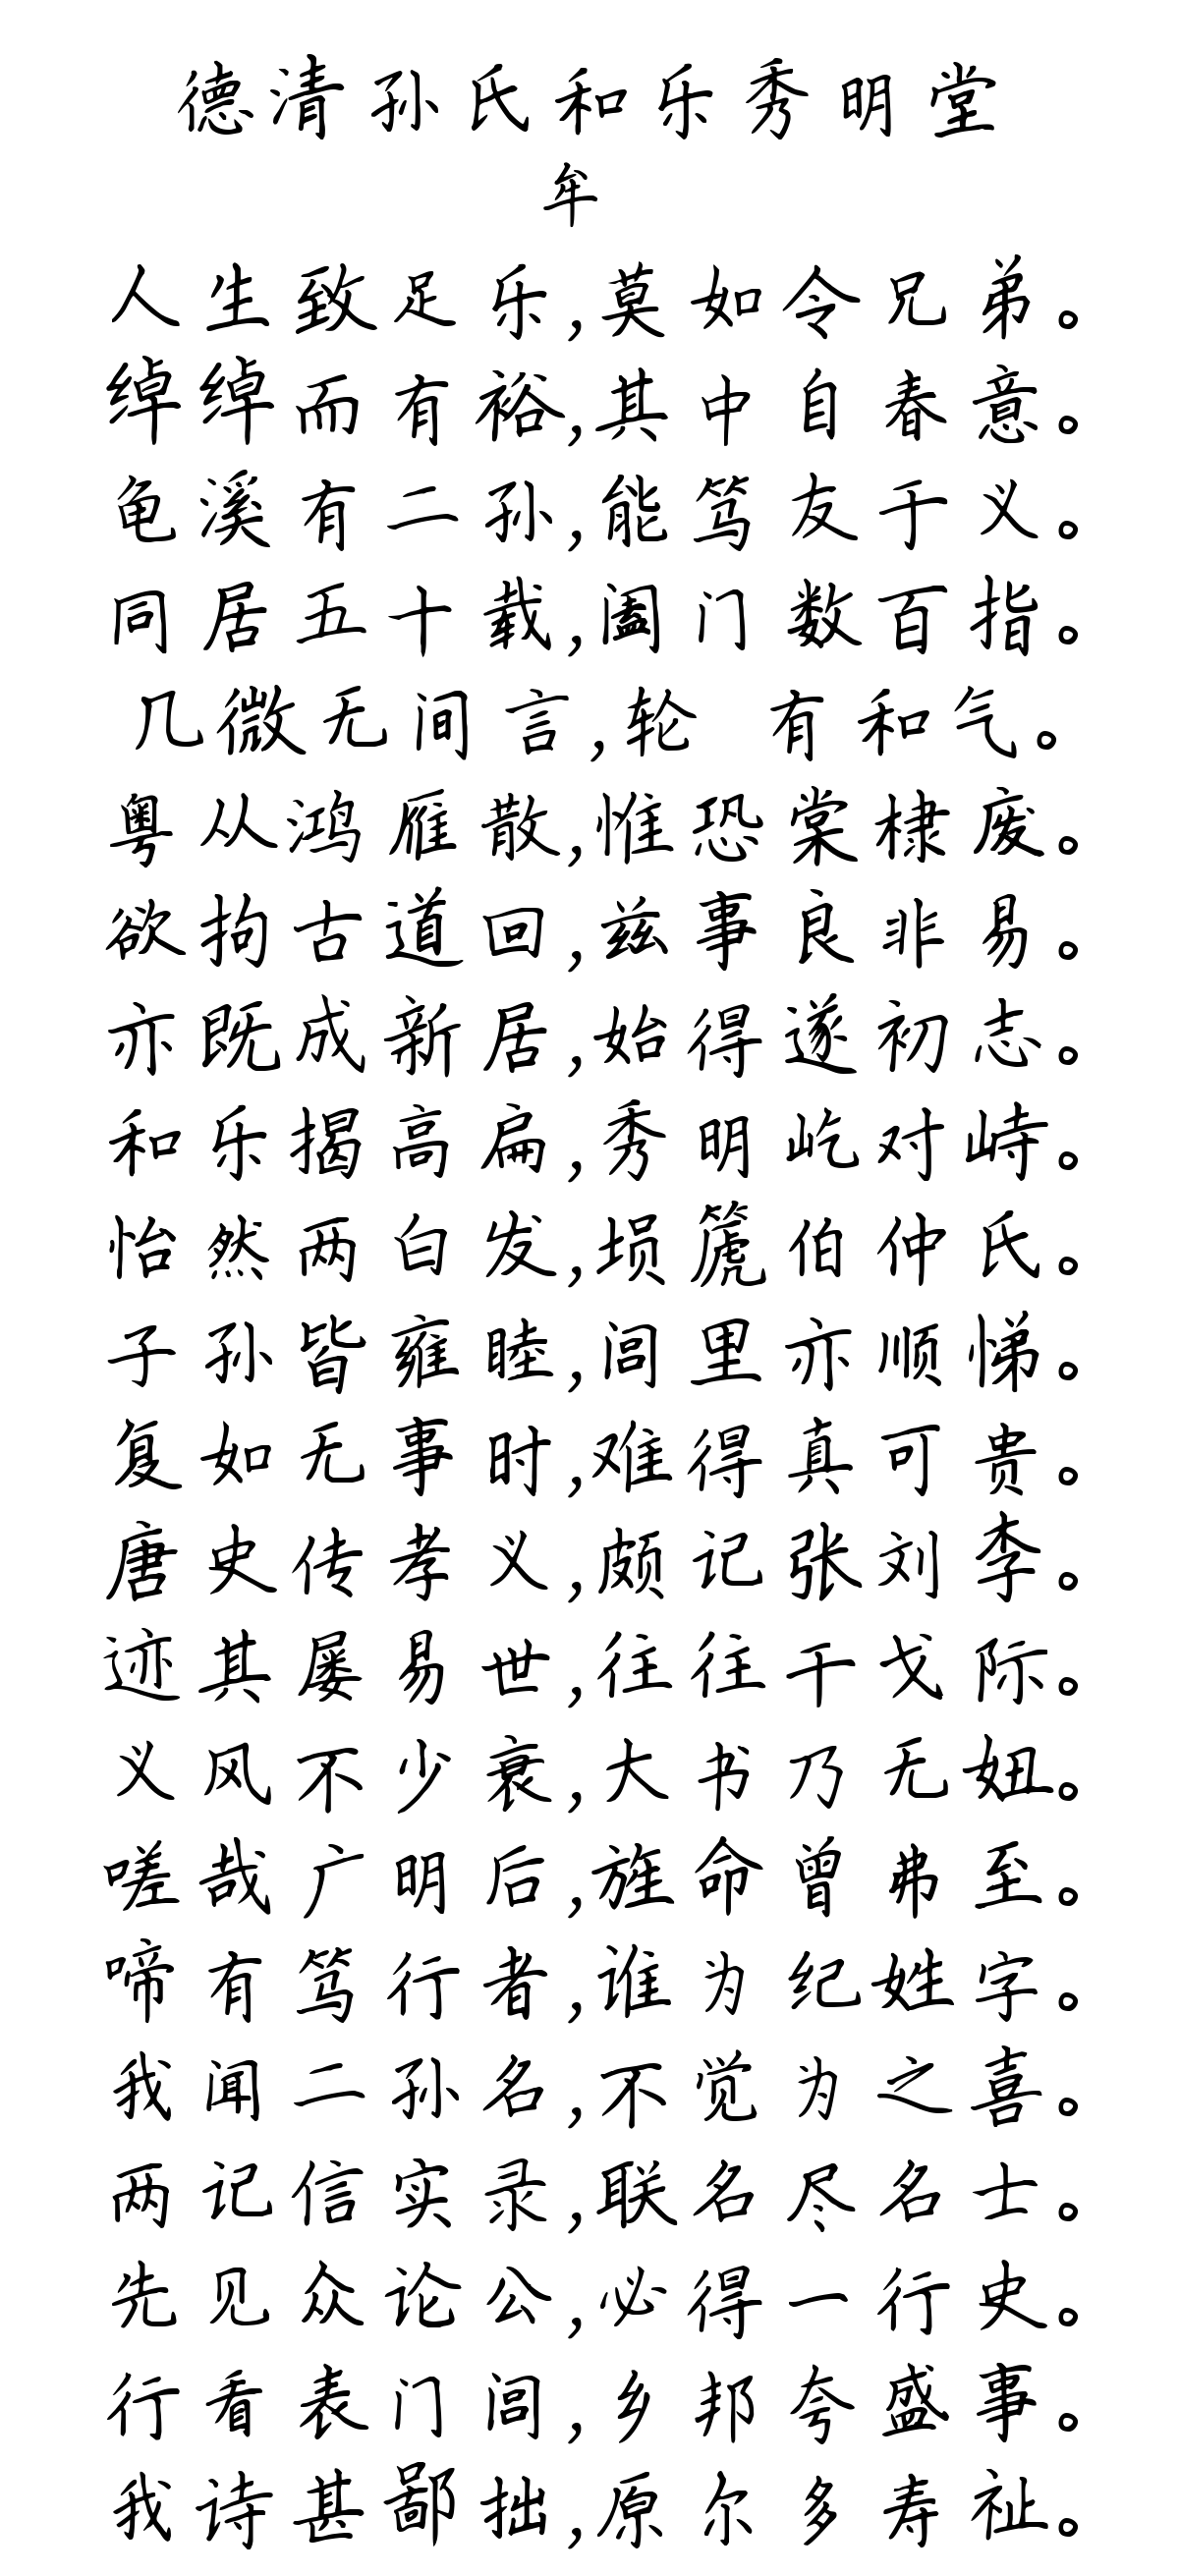 德清孙氏和乐秀明堂
牟
人生致足乐,莫如令兄弟。
绰绰而有裕,其中自春意。
龟溪有二孙,能笃友于义。
同居五十载,阖门数百指。
几微无间言,轮 有和气。
粤从鸿雁散,惟恐棠棣废。
欲拘古道回,兹事良非易。
亦既成新居,始得遂初志。
和乐揭高扁,秀明屹对峙。
怡然两白发,埙篪伯仲氏。
子孙皆雍睦,闾里亦顺悌。
复如无事时,难得真可贵。
唐史传孝义,颇记张刘李。
迹其屡易世,往往干戈际。
义风不少衰,大书乃无妞。
嗟哉广明后,旌命曾弗至。
啼有笃行者,谁为纪姓字。
我闻二孙名,不觉为之喜。
两记信实录,联名尽名士。
先见众论公,必得一行史。
行看表门闾,乡邦夸盛事。
我诗甚鄙拙,原尔多寿祉。